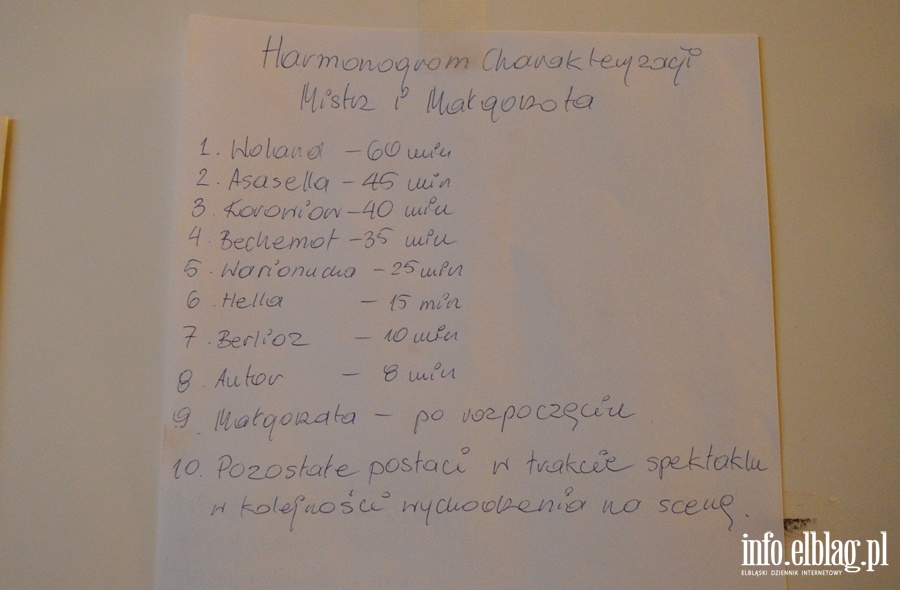 Harmonogram Charakteryzacji
Mistrz i Małgorzata
1. Woland - 60 min
2. Asasella - 45 min
3. Korowiow - 40 min
4. Bechemot - 35 min
5. Warionucha - 25 min
6. Hella - 15 min
7. Berlioz - 10 min
8. Autor - 8 min
9. Małgorzata - po rozpoczęciu
10. Pozostałe postaci w trakcie spektaklu
w kolejności wychodzenia na scenę.
info.elblag.pl
ELBLĄSKI DZIENNIK INTERNETOWY